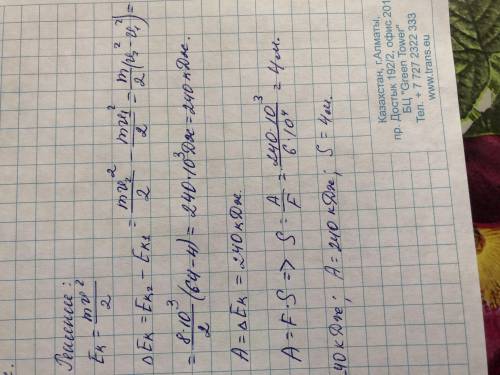 Решение:
Eк = mv²/2
ΔEк = Eк₂ - Eк₂ = mv₂²/2 - mv₁²/2 = m/2 (v₂² - v₁²) =
= 8·10³/2 (64-4) = 240·10³ Дж = 240 кДж.
A = ΔEк = 240 кДж.
A = F·S => S = A/F = 240·10³/6·10⁴ = 4 м.
40 кДж; A = 240 кДж; S = 4 м.
Казахстан, г.Алматы,
пр. Достык 192/2, офис 201
БЦ "Green Tower"
Тел. + 7 727 2322 333
www.trans.eu